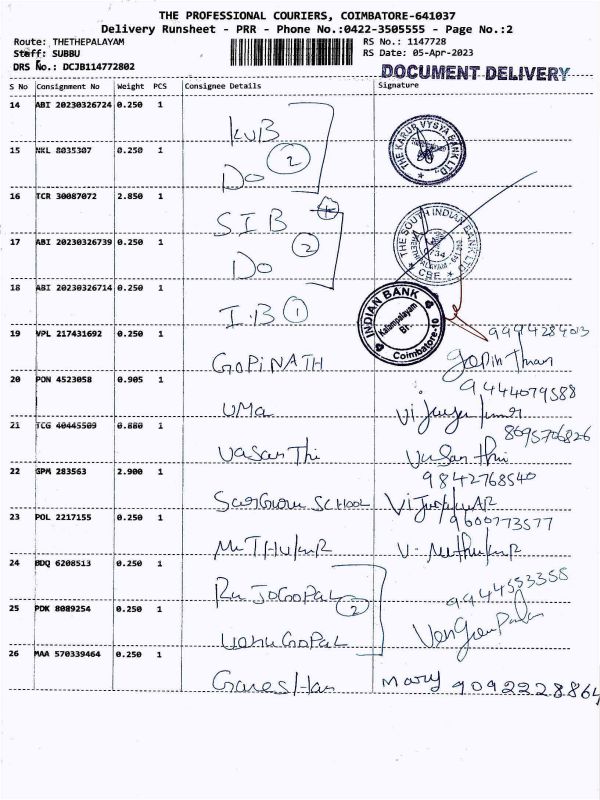 THE PROFESSIONAL COURIERS, COIMBATORE-641037
Delivery Runsheet - PRR - Phone No.:0422-3505555 - Page No.:2
Route: THETHEPALAYAM RS No.: 1147728
Staff: SUBBU RS Date: 05-Apr-2023
DRS No.: DCJB114772802 DOCUMENT DELIVERY
S No Consignment No Weight PCS Consignee Details Signature
14 ABI 20230326724 0.250 1
KUB THE KARUR VYSYA BANK LTD.
15 NKL 8035307 0.250 1
Do 2
16 TCR 30087072 2.850 1
SIB THE SOUTH INDIAN BANK LTD CBE
17 ABI 20230326739 0.250 1
Do 2
18 ABI 20230326714 0.250 1
I.B 1 INDIAN BANK Kalampalayam Br. Coimbatore-10
19 VPL 217431692 0.250 1
GOPiNATH
20 PON 4523058 0.905 1 9444079588
UMa
21 TCG 40445509 0.880 1 8695706826
VasanThi
22 GPM 283563 2.900 1 9842768540
SCHOOL
23 POL 2217155 0.250 1 9600773577
24 BDQ 6208513 0.250 1 9944553355
RaJaGoPaL 2
25 PDK 8089254 0.250 1
VenuGoPaL
26 MAA 570339464 0.250 1
GaneshHan Mary 9092228864